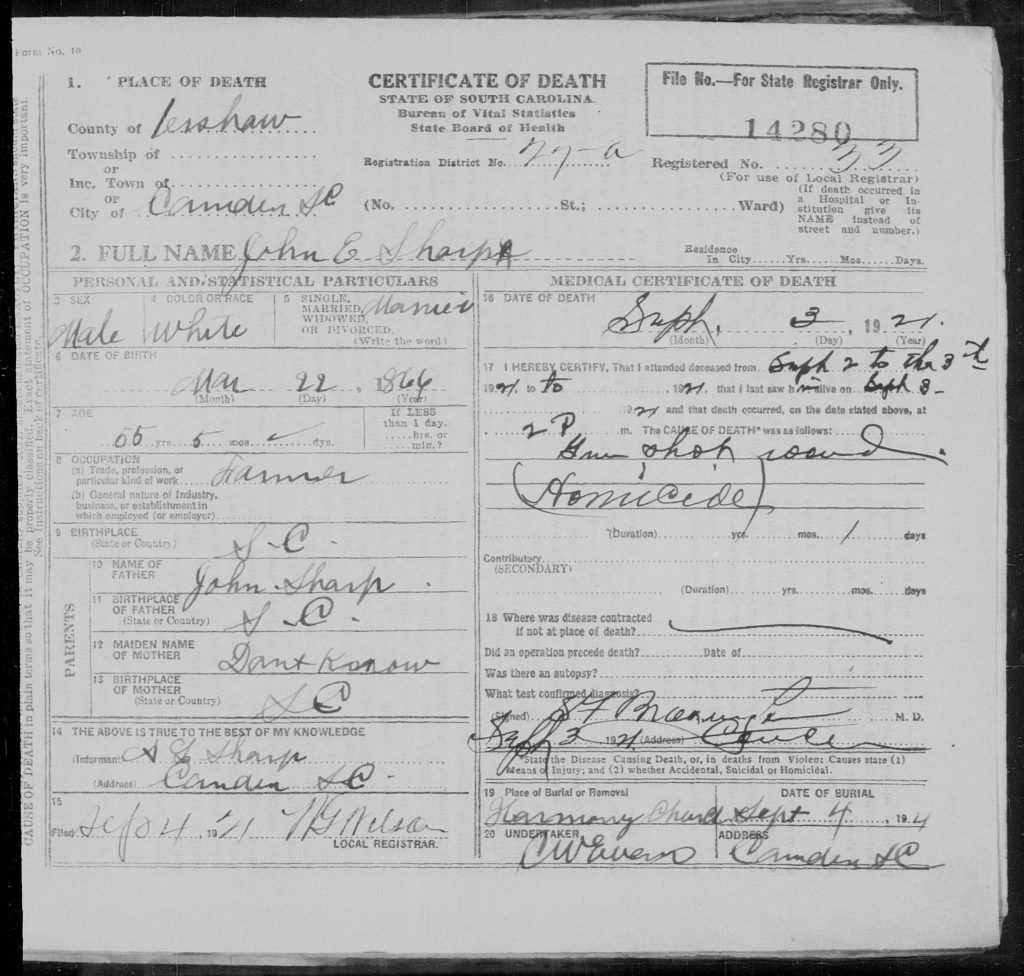 Form No. 10
1. PLACE OF DEATH
County of Kershaw
Township of
or
Inc. Town of
or
City of Camden SC
CERTIFICATE OF DEATH
STATE OF SOUTH CAROLINA
Bureau of Vital Statistics
State Board of Health
Registration District No. 27-a
(No. St.; Ward)
File No.—For State Registrar Only.
14280
Registered No. 33
(For use of Local Registrar)
(If death occurred in
a Hospital or In-
stitution give its
NAME instead of
street and number.)
2. FULL NAME John E Sharp
Residence
In City Yrs. Mos. Days.
PERSONAL AND STATISTICAL PARTICULARS
3 SEX
Male
4 COLOR OR RACE
White
5 SINGLE,
MARRIED,
WIDOWED,
OR DIVORCED.
(Write the word)
Married
6 DATE OF BIRTH
Mar 22 1866
(Month) (Day) (Year)
7 AGE
55 yrs. 5 mos. ds.
If LESS
than 1 day.
hrs. or
min.?
8 OCCUPATION
(a) Trade, profession, or
particular kind of work Farmer
(b) General nature of Industry,
business, or establishment in
which employed (or employer)
9 BIRTHPLACE
(State or Country) S-C
PARENTS
10 NAME OF
FATHER John Sharp
11 BIRTHPLACE
OF FATHER
(State or Country) S-C
12 MAIDEN NAME
OF MOTHER Dont Know
13 BIRTHPLACE
OF MOTHER
(State or Country) S C
14 THE ABOVE IS TRUE TO THE BEST OF MY KNOWLEDGE
(Informant) Sharp
(Address) Camden SC
15
(Filed) Sep 4, 1921 Wilson
LOCAL REGISTRAR.
MEDICAL CERTIFICATE OF DEATH
16 DATE OF DEATH
Seph. 3, 1921.
(Month) (Day) (Year)
17 I HEREBY CERTIFY, That I attended deceased from Seph 2 to the 3th
1921 to to 1921, that I last saw him alive on Seph 3-
1921 and that death occurred, on the date stated above, at
2 P m. The CAUSE OF DEATH* was as follows:
Gun shot wound.
(Homicide)
(Duration) yrs. mos. 1 days
Contributory
(SECONDARY)
(Duration) yrs. mos. days
18 Where was disease contracted
if not at place of death?
Did an operation precede death? Date of
Was there an autopsy?
What test confirmed diagnosis?
(Signed) M. D.
Seph 3 1921 (Address)
*State the Disease Causing Death, or, in deaths from Violent Causes state (1)
Means of Injury; and (2) whether Accidental, Suicidal or Homicidal.
19 Place of Burial or Removal
Harmony Church
DATE OF BURIAL
Sept 4, 19
20 UNDERTAKER
C W Evans
ADDRESS
Camden SC
CAUSE OF DEATH in plain terms so that it may be properly classified. Exact statement of OCCUPATION is very important.
See Instructions on back of certificate.